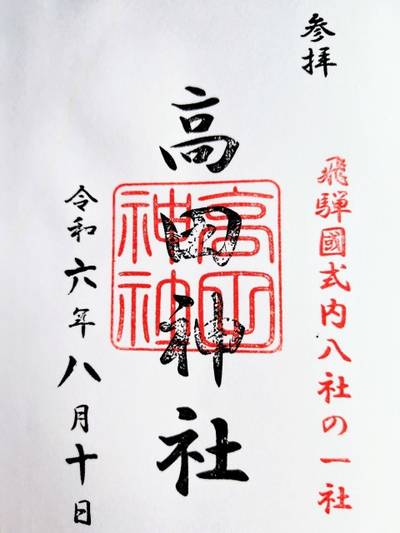 参拝
飛騨國式内八社の一社
高田神社
高田
神社
令和六年八月十日